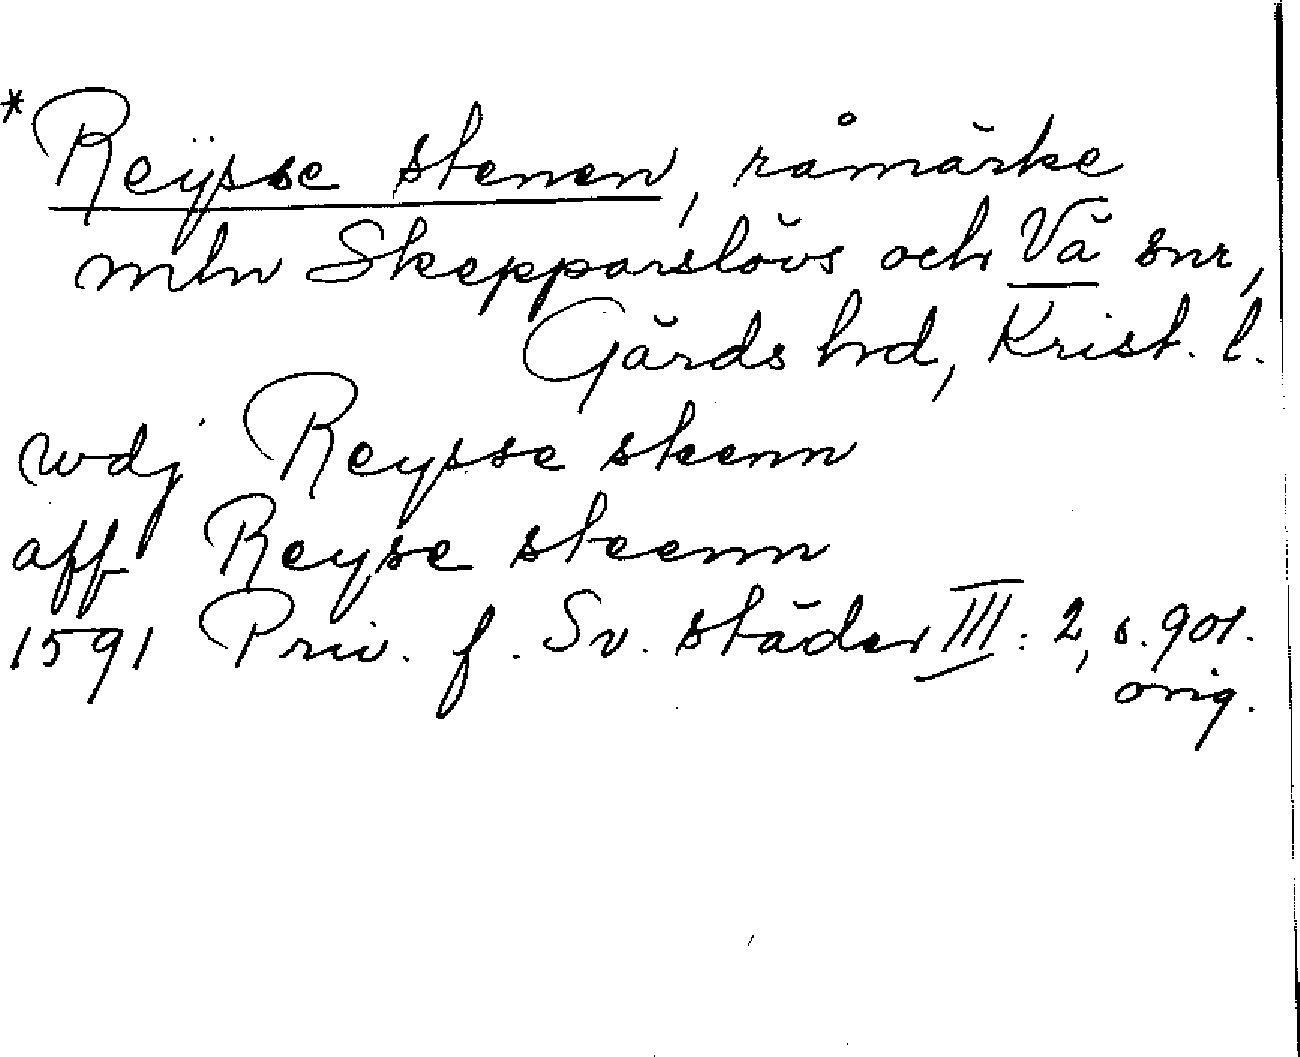 *Reÿsse stenen, råmärke
mln Skepparslövs och Vä snr,
Gärds hd, Krist. l.
wdj Reysse steenn
aff Reyse steenn
1591 Priv. f. Sv. städer III: 2, s. 901.
orig.